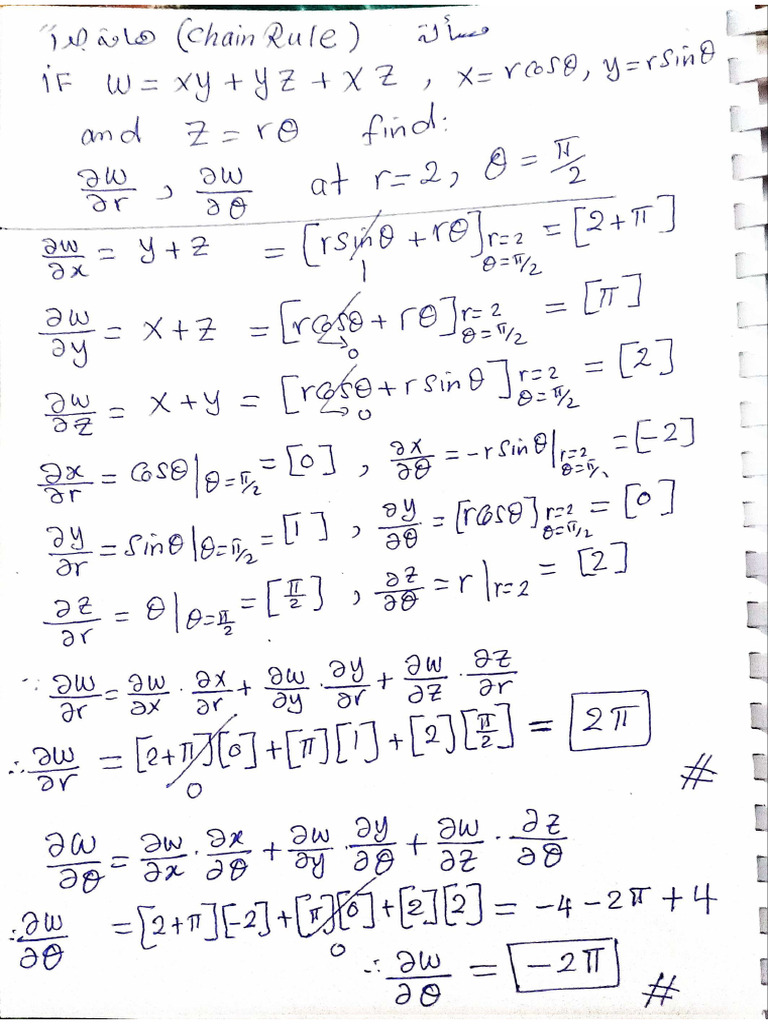 مسألة (Chain Rule) هامة جداً
if w = xy + yz + xz , x = rcosθ, y = rsinθ
and z = rθ find:
∂w/∂r , ∂w/∂θ at r=2, θ = π/2
∂w/∂x = y+z = [rsinθ + rθ] r=2 θ=π/2 = [2+π]
1
∂w/∂y = x+z = [rcosθ + rθ] r=2 θ=π/2 = [π]
0
∂w/∂z = x+y = [rcosθ + rsinθ] r=2 θ=π/2 = [2]
0
∂x/∂r = cosθ|θ=π/2 = [0] , ∂x/∂θ = -rsinθ| r=2 θ=π/2 = [-2]
∂y/∂r = sinθ|θ=π/2 = [1] , ∂y/∂θ = [rcosθ] r=2 θ=π/2 = [0]
∂z/∂r = θ|θ=π/2 = [π/2] , ∂z/∂θ = r|r=2 = [2]
∵ ∂w/∂r = ∂w/∂x · ∂x/∂r + ∂w/∂y · ∂y/∂r + ∂w/∂z · ∂z/∂r
∴ ∂w/∂r = [2+π][0] + [π][1] + [2][π/2] = 2π
0 #
∂w/∂θ = ∂w/∂x · ∂x/∂θ + ∂w/∂y · ∂y/∂θ + ∂w/∂z · ∂z/∂θ
∴ ∂w/∂θ = [2+π][-2] + [π][0] + [2][2] = -4 - 2π + 4
0
∴ ∂w/∂θ = -2π #